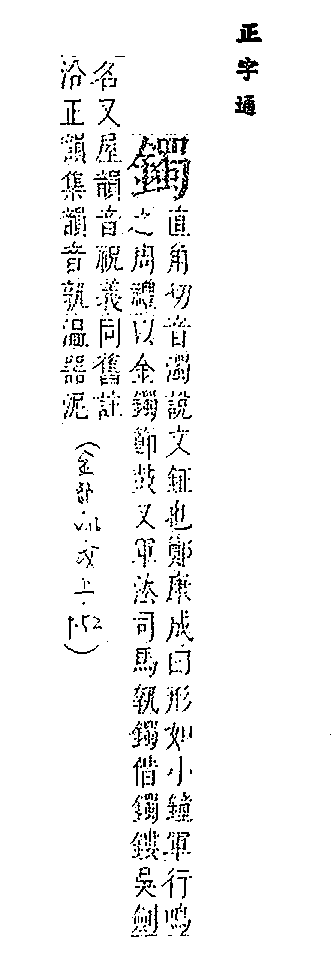 正字通
鐲直角切音濁說文鉦也鄭康成曰形如小鐘軍行鳴
之周禮以金鐲節鼓又軍法司馬執鐲借鐲鏤吳劍
名又屋韻音祝義同舊註
沿正韻集韻音孰溫器泥
(金部・戌上・p.52)